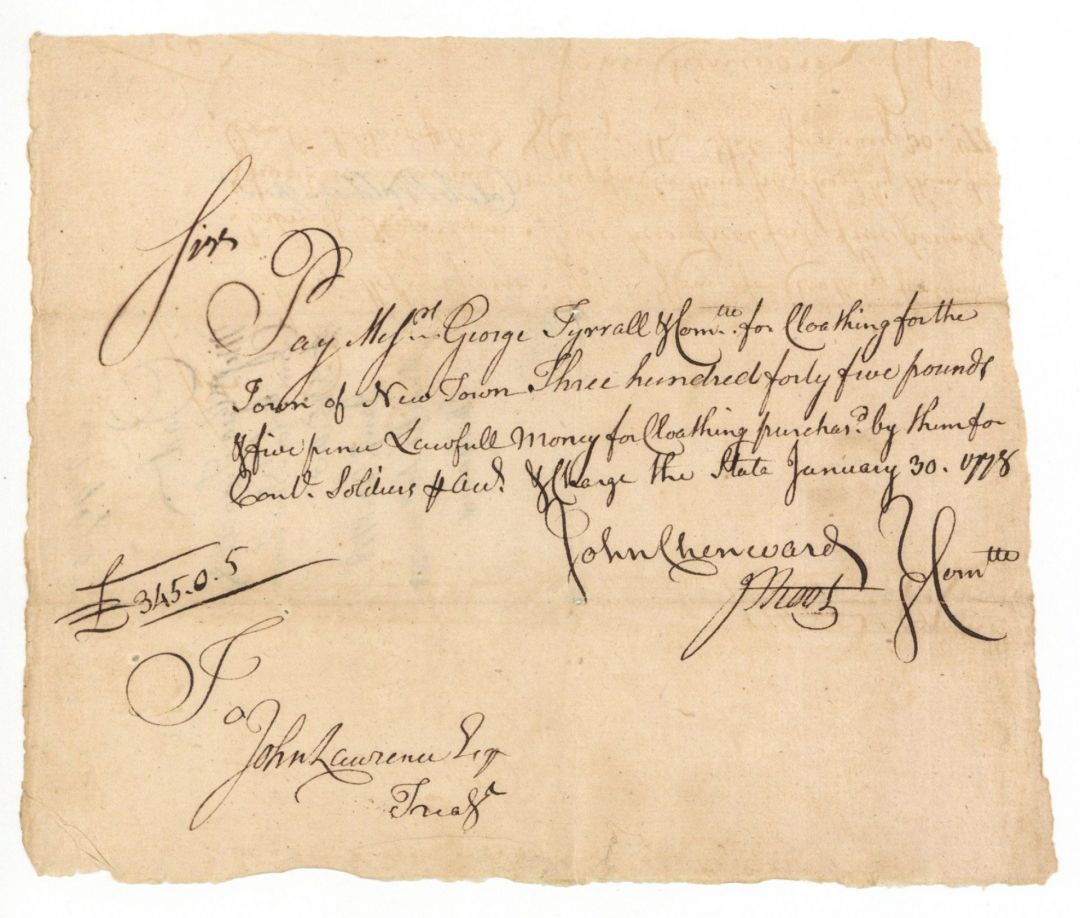 Sir
Pay Mess.rs George Tyrrall & Com.tte for Cloathing for the
Town of New Town Three hundred forty five pounds
& five pence Lawfull Money for Cloathing purchas.d by them for
Cont.l Soldiers & Charge the State January 30. 1778
John Chenward
J Root
Com.tte
£345.0.5
To
John Lawrence Esq
Treas.r